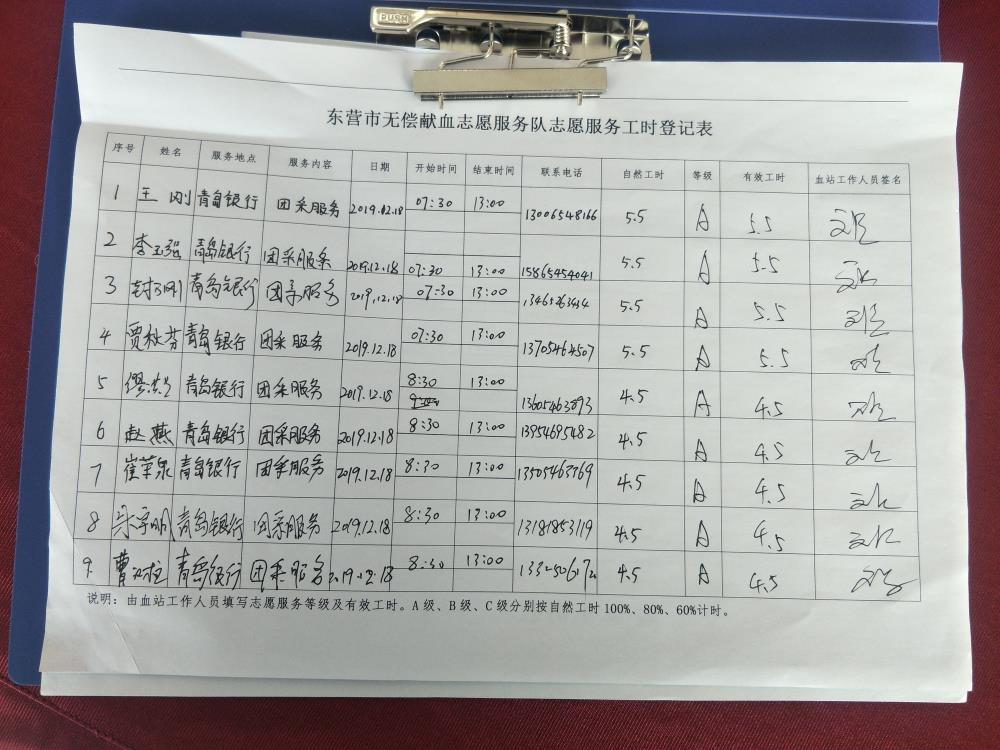 PUSH
东营市无偿献血志愿服务队志愿服务工时登记表
序号 姓名 服务地点 服务内容 日期 开始时间 结束时间 联系电话 自然工时 等级 有效工时 血站工作人员签名
1 王刚 青岛银行 团采服务 2019.12.18 07:30 13:00 13006548166 5.5 A 5.5
2 李玉强 青岛银行 团采服务 2019.12.18 07:30 13:00 15865454041 5.5 A 5.5
3 青岛银行 团采服务 2019.12.18 07:30 13:00 5.5 A 5.5
4 贾秋芬 青岛银行 团采服务 2019.12.18 07:30 13:00 13705464507 5.5 A 5.5
5 青岛银行 团采服务 2019.12.18 8:30 13:00 13605463093 4.5 A 4.5
6 赵燕 青岛银行 团采服务 2019.12.18 8:30 13:00 13954695482 4.5 A 4.5
7 崔苹泉 青岛银行 团采服务 2019.12.18 8:30 13:00 13505463369 4.5 A 4.5
8 青岛银行 团采服务 2019.12.18 8:30 13:00 13181853119 4.5 A 4.5
9. 青岛银行 团采服务 2019.12.18 8:30 13:00 4.5 A 4.5
说明：由血站工作人员填写志愿服务等级及有效工时。A 级、B 级、C 级分别按自然工时 100%、80%、60%计时。